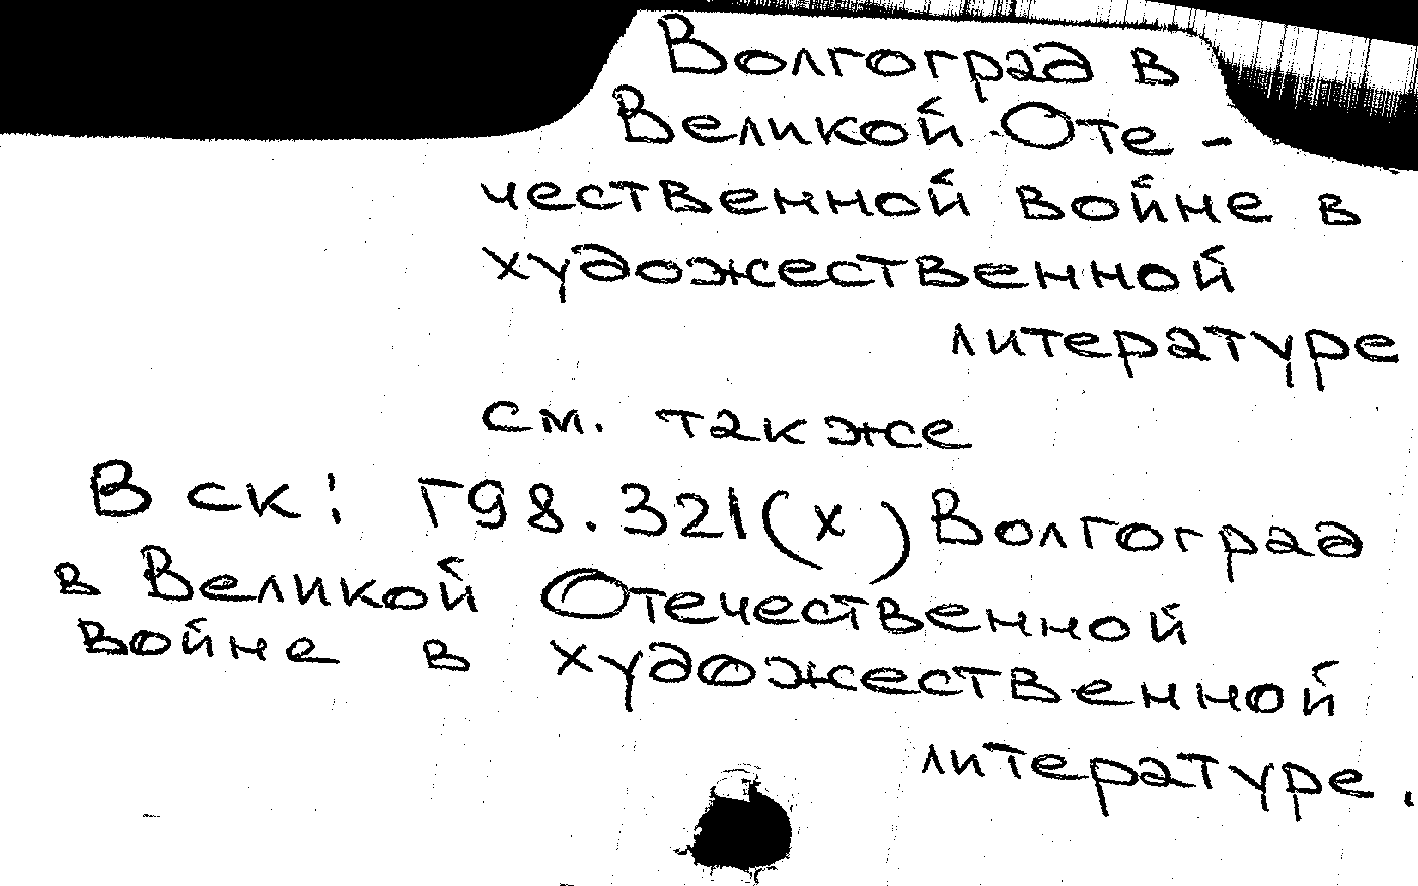 Волгоград в
Великой Оте-
чественной войне в
художественной
литературе
см. также
В ск: Г98.321(х) Волгоград
в Великой Отечественной
войне в художественной
литературе.